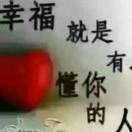 幸福
就是
有
懂你
的
人